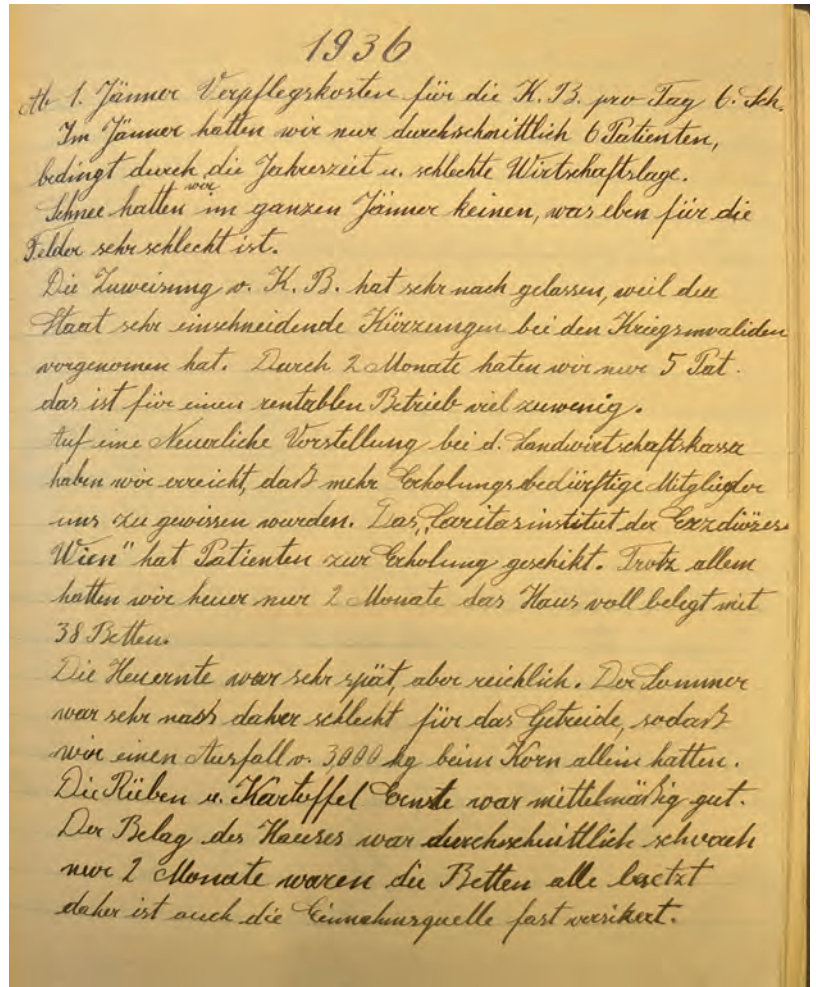 1936
Ab 1. Jänner Verpflegskosten für die K. B. pro Tag 6. Sch.
Im Jänner hatten wir nur durchschnittlich 6 Patienten,
bedingt durch die Jahreszeit u. schlechte Wirtschaftslage.
Schnee hatten wir im ganzen Jänner keinen, was eben für die
Felder sehr schlecht ist.
Die Zuweisung v. K. B. hat sehr nach gelassen, weil der
Staat sehr einschneidende Kürzungen bei den Kriegsinvaliden
vorgenomen hat. Durch 2 Monate haten wir nur 5 Pat.
das ist für einen rentablen Betrieb viel zuwenig.
Auf eine Neuerliche Vorstellung bei d. Landwirtschaftskassa
haben wir erreicht, daß mehr Erholungsbedürftige Mitglieder
uns zu gewissen wurden. Das "Caritasinstitut der Erzdiözese
Wien" hat Patienten zur Erholung geschikt. Trotz allem
hatten wir heuer nur 2 Monate das Haus voll belegt mit
38 Betten.
Die Heuernte war sehr spät, aber reichlich. Der Sommer
war sehr nass daher schlecht für das Getreide, sodaß
wir einen Ausfall v. 3000 kg beim Korn allein hatten.
Die Rüben u. Kartoffel Ernte war mittelmäßig gut.
Der Belag des Hauses war durchschnittlich schwach
nur 2 Monate waren die Betten alle besetzt
daher ist auch die Einnahmsquelle fast versikert.